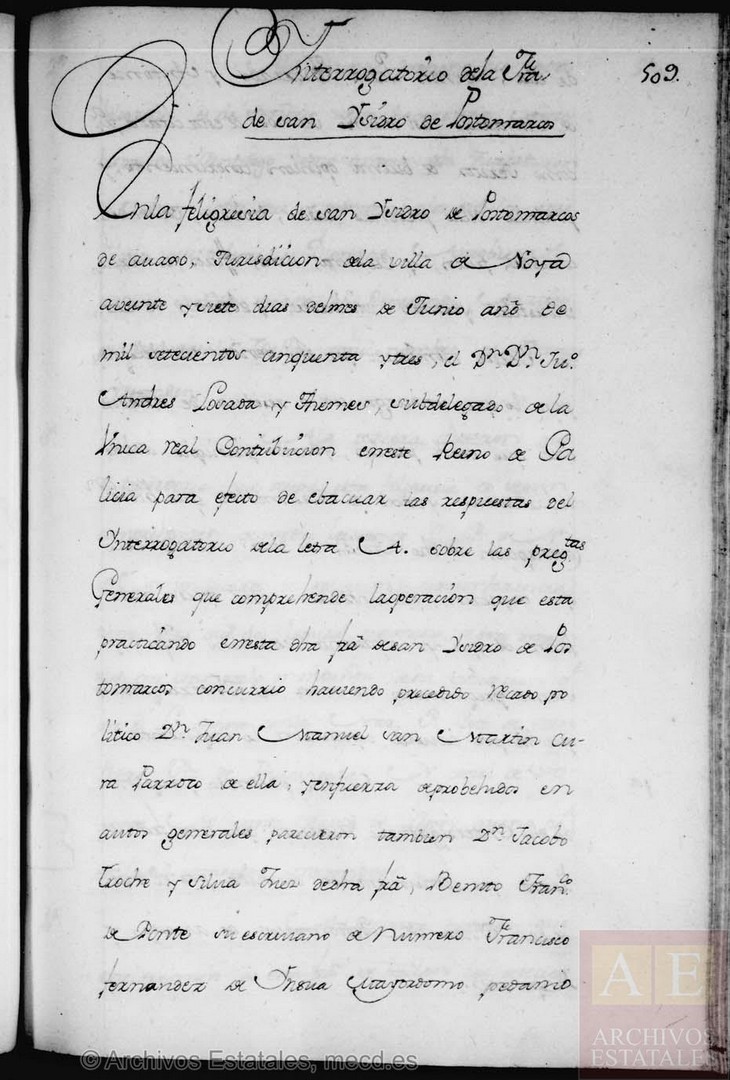 Interrogatorio de la Fra 509.
de san Ysidro de Postomarcos
Enla feligresia de san Ysidro de Postomarcos
de auaxo, Jurisdicion dela villa de Noya
aveinte ysiete dias delmes de Junio año de
mil setecientos cinquenta ytres, el Dn. Dn. Juo.
Andres Losada y Themes, subdelegado de la
Unica real Contribucion eneste Reino de Ga
licia para efecto de ebacuar las respuestas del
Ynterrogatorio dela letra A. sobre las pregtas
Generales que comprehende laoperacion que esta
practicando enesta dha fra desan Ysidro de Pos
tomarcos concurrio hauiendo precedido recado po
litico Dn. Juan Manuel san Martin Cu-
ra Parroco de ella, yenfuerza deprobehidos en
autos generales parecieron tambien Dn. Jacobo
Troche y Silua Juez dedha fra, Benito Franco.
de Ponte su escriuano de Numero Francisco
fernandez de Mayordomo pedanio
© Archivos Estatales, mecd.es
AE
ARCHIVOS
ESTATALES